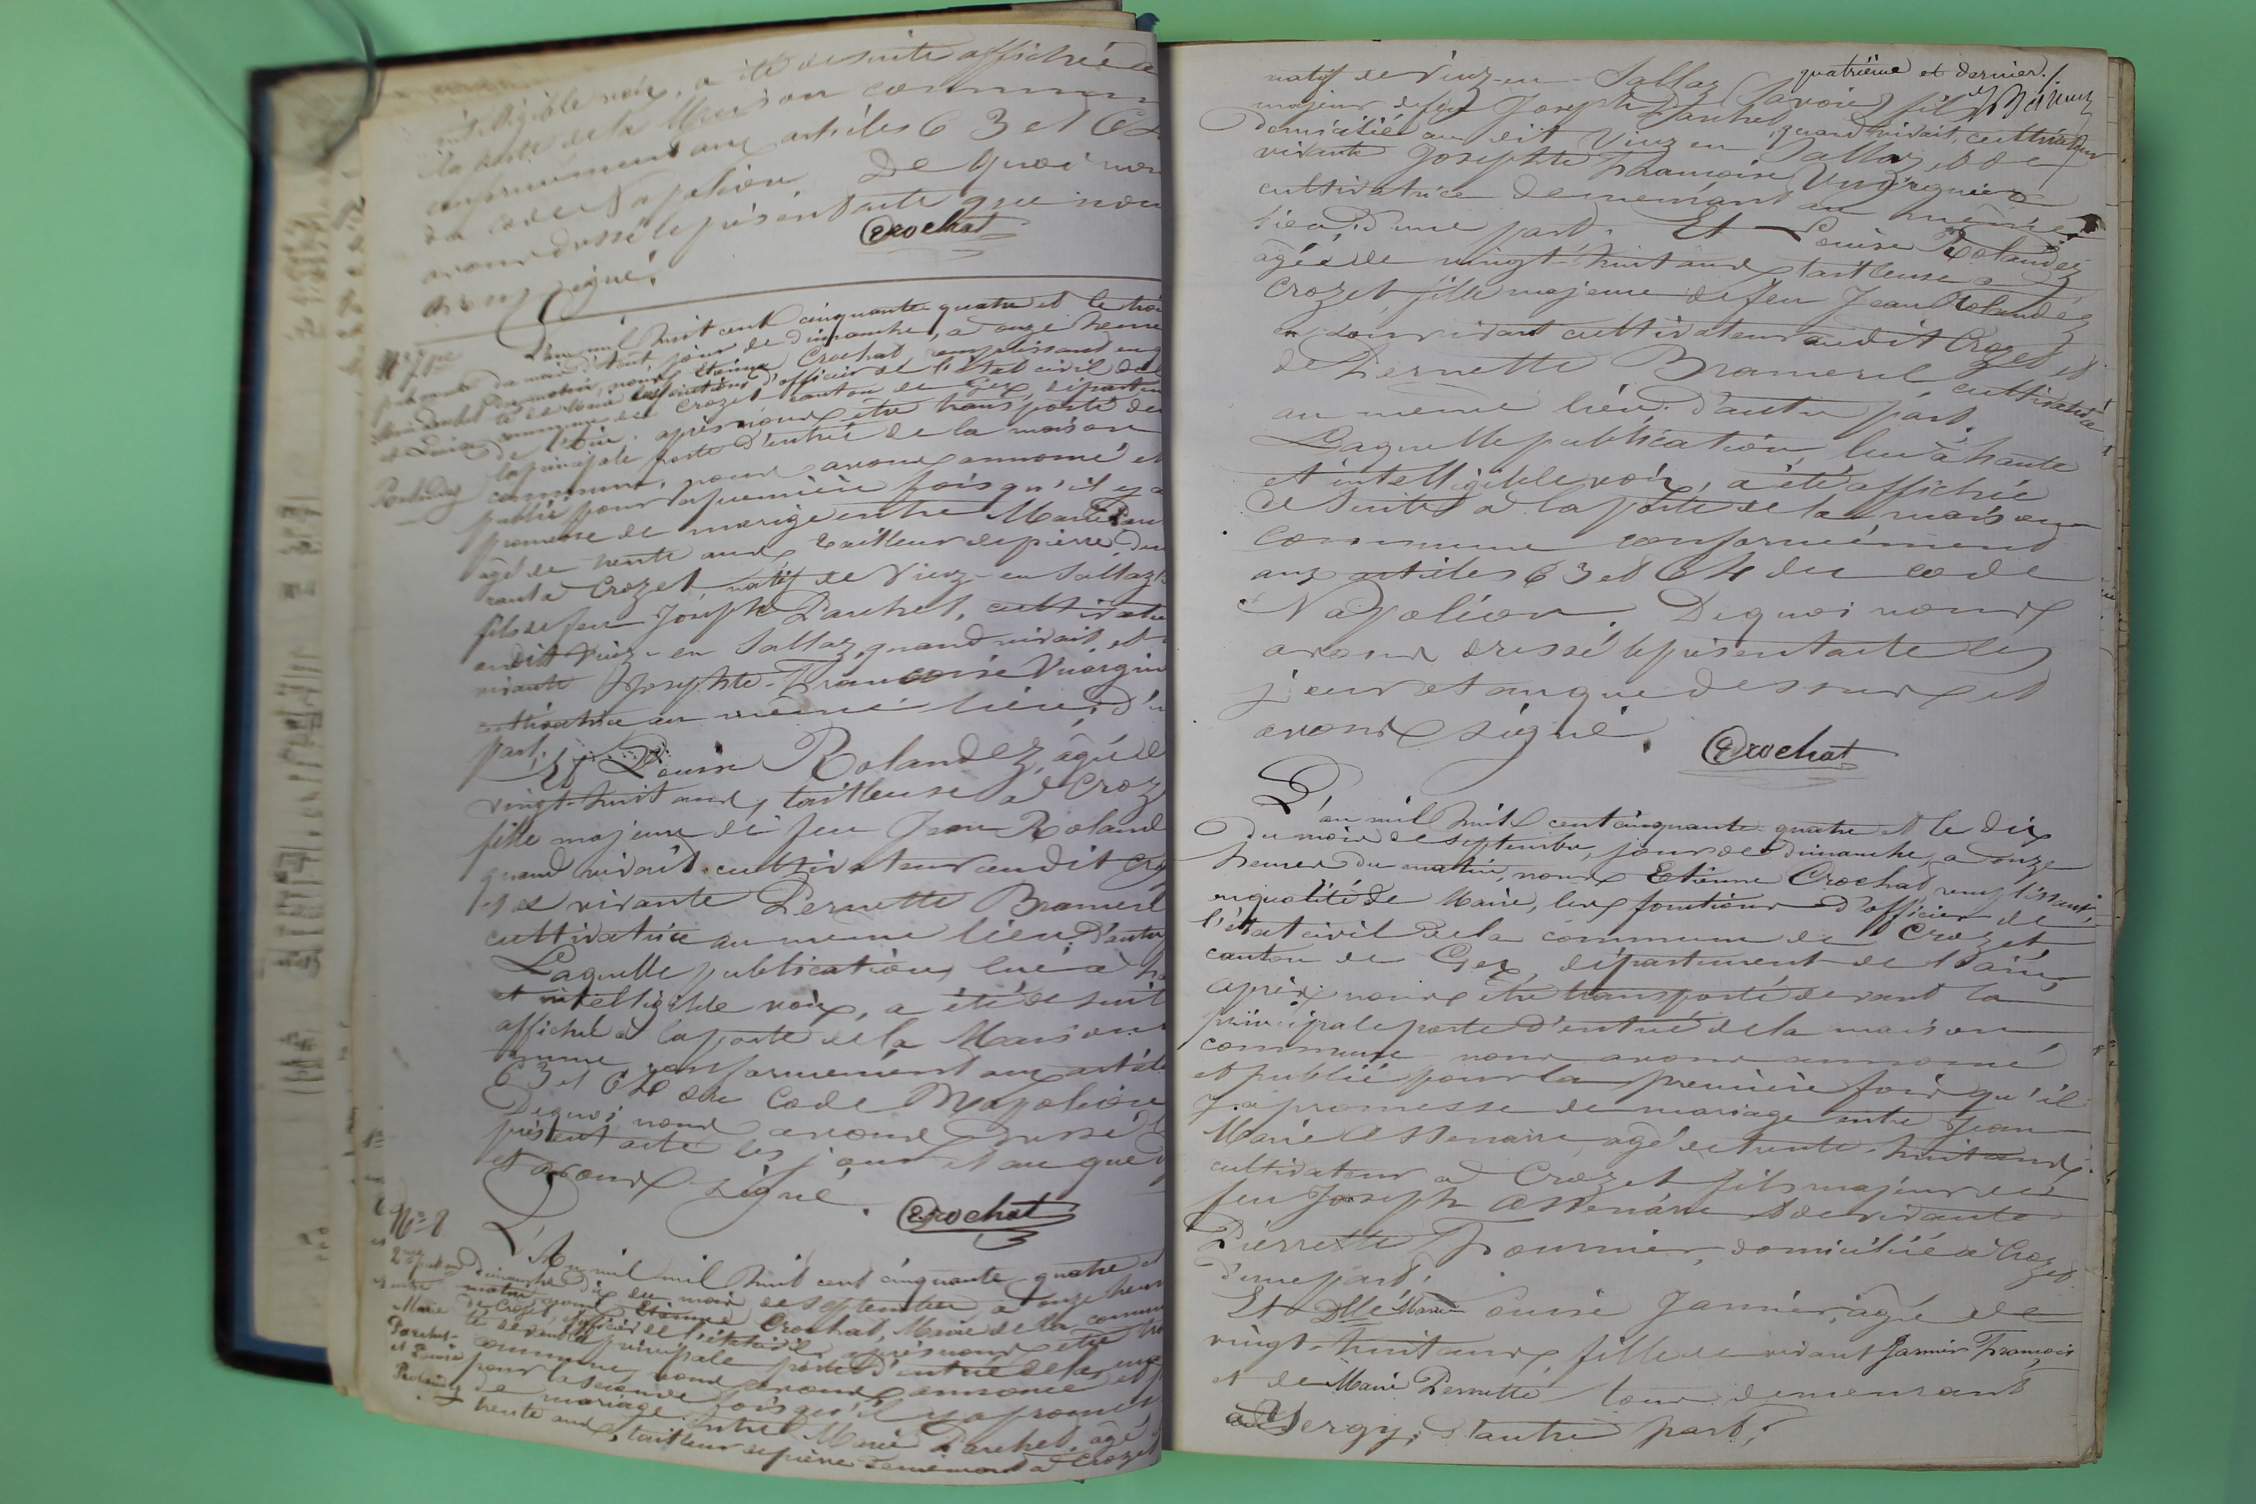 intelligible voix, a été de suite affichée à
la porte de la Maison commun
conformément aux articles 63 et 64
du code Napoléon. De quoi nou
avons dressé le présent acte que nou
avons signé.
Crochat
N° 7
publication
Marie Parchet
et Louise
Rolandez
L'an mil huit cent cinquante quatre et le trois
du mois jour de dimanche, à onze heure
du matin, nous Etienne Crochat, remplissant en q
de maire les fonctions d'officier de l'état civil de la
commune de Crozet canton de Gex, départem
de l'Ain, après nous être transporté de
la principale porte d'entrée de la maison
commune, nous avons annoncé et
publié pour la première fois qu'il y a
promesse de mariage entre Marie Par
âgé de trente ans tailleur de pierre, deu
rant à Crozet natif de Viuz-en Sallaz
fils de feu Joseph Parchet, cultivateu
audit Viuz-en Sallaz, quand vivait, et
vivante Josephte-Francoise Vuargni
cultivatrice au même lieu; d'u
part,
Et Louise Rolandez, âgée de
vingt-huit ans, tailleuse à Croz
fille majeure de feu Jean Roland
quand vivait cultivateur audit Cro
et de vivante Pernette Bramerel
cultivatrice au même lieu, d'autre
Laquelle publication, lue à h
et intelligible voix, a été de suit
affiché à la porte de la Maison
omune conformément aux article
63 et 64 du Code Napoléon
De quoi nous avons dressé l
présent acte les jour et an que d
et avons signé.
Crochat
N° 8
2me publ on
entre
Marie
Parchet
et Louise
Rolandez
L'An mil mil huit cent cinquante quatre et
dimanche dix du mois de septembre à onze heure
matin nous Etienne Crochat, Maire de la commu
de Crozet, officier de l'état civil après nous être tra
té devant la principale porte d'entrée de la mai
commune, nous avons annoncé et p
pour la seconde fois qu'il y a promes
de mariage entre Marie Parchet, âgé
trente ans, tailleur de pierre demeurant à Crozet
quatrième et dernier.
natif de Viuz-en-Sallaz (Savoie) fils
majeur de feu Joseph Parchet, quand vivait, cultivateur
domicilié au dit Viuz en Sallaz, et de
vivante Josephte Francoise Vuargnier
cultivatrice demeurant au même
lieu; d'une part. Et Louise Rolandez
âgée de vingt-huit ans tailleuse à
Crozet fille majeure de feu Jean Rolandez
en son vivant cultivateur audit Crozet et
de Pernette Bramerel cultivatrice
au même lieu. d'autre part.
Laquelle publication, lue à haute
et intelligible voix, a été affichée
de suite à la porte de la maison
commune conformément
aux articles 63 et 64 du code
Napoléon. De quoi nous
avons dressé le présent acte les
jour et an que dessus et
avons signé.
Crochat
L'an mil huit cent cinquante-quatre et le dix
du mois de septembre, jour de dimanche, à onze
heures du matin, nous Etienne Crochat remplissant,
en qualité de Maire, les fonctions d'officier de
l'état civil de la commune de Crozet,
canton de Gex, département de l'Ain,
après nous être transporté devant la
principale porte d'entrée de la maison
commune nous avons annoncé
et publié pour la première fois qu'il
y a promesse de mariage entre Jean
Marie agé de trente-huit ans
cultivateur à Crozet fils majeur de
feu Joseph et de vivante
Pierrette Fournier, domiciliée à Crozet
d'une part,
Et Dlle Marie Louise Jannier, agé de
vingt-huit ans, fille de vivant Jannier François
et de Marie Pernette tous demeurant
à Vergy; d'autre part;